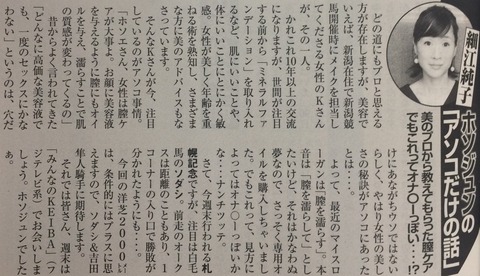 細江純子
ホソジュンの
「アソコだけの話」
美のプロから教えてもらった膣ケア
でもこれってオナ〇ーっぽい…!?
どの道にもプロと思える
方が存在しますが、美容で
いえば、新潟在住で新潟競
馬開催時にメイクを担当し
てくださる女性のKさん
が、その一人。
かれこれ10年以上の交流
になりますが、世間が注目
する前から「ミネラルファ
ンデーション」を取り入れ
るなど、肌にいいことや、
体にいいことにとにかく敏
感。女性が美しく年齢を重
ねる術を熟知し、さまざま
な方に美のアドバイスもな
さっています。
そんなKさんが今、注目
しているのがアソコ事情。
「ホソエさん、女性は膣ケ
アが大事よ。お顔に美容液
を与えるように膣にもオイ
ルを与え、濡らすことで肌
の質感が変わってくるの」
昔からよく言われてきた
「どんなに高価な美容液で
も、一度のセックスにかな
わない」というのは、穴だ
けにあながちウソではない
らしく、やはり女性の美し
さの秘訣がアソコにあった
とは……。
よって、最近のマイスロ
ーガンは「膣を濡らす」。本
音は「膣を濡らして」とし
たいけど、それはかなわぬ
夢なので、さっそく専用オ
イルを購入しちゃいまし
た。でもこれって、見方に
よってはオナ〇ーっぽい
な……ナンチッテッ。
さて、今週末行われる札
幌記念ですが、注目は白毛
馬のソダシ。前走のオーク
スは距離のこともあり、1
コーナーの入り口で勝敗が
分かれたようにも……。
今回の洋芝2000㍍
は、条件的にはプラスに思
えますので、ソダシ&吉田
隼人騎手に期待します。
それでは皆さん、週末は
「みんなのKEIBA」(フ
ジテレビ系)でお会いしま
しょう。ホソジュンでした
ぁ。